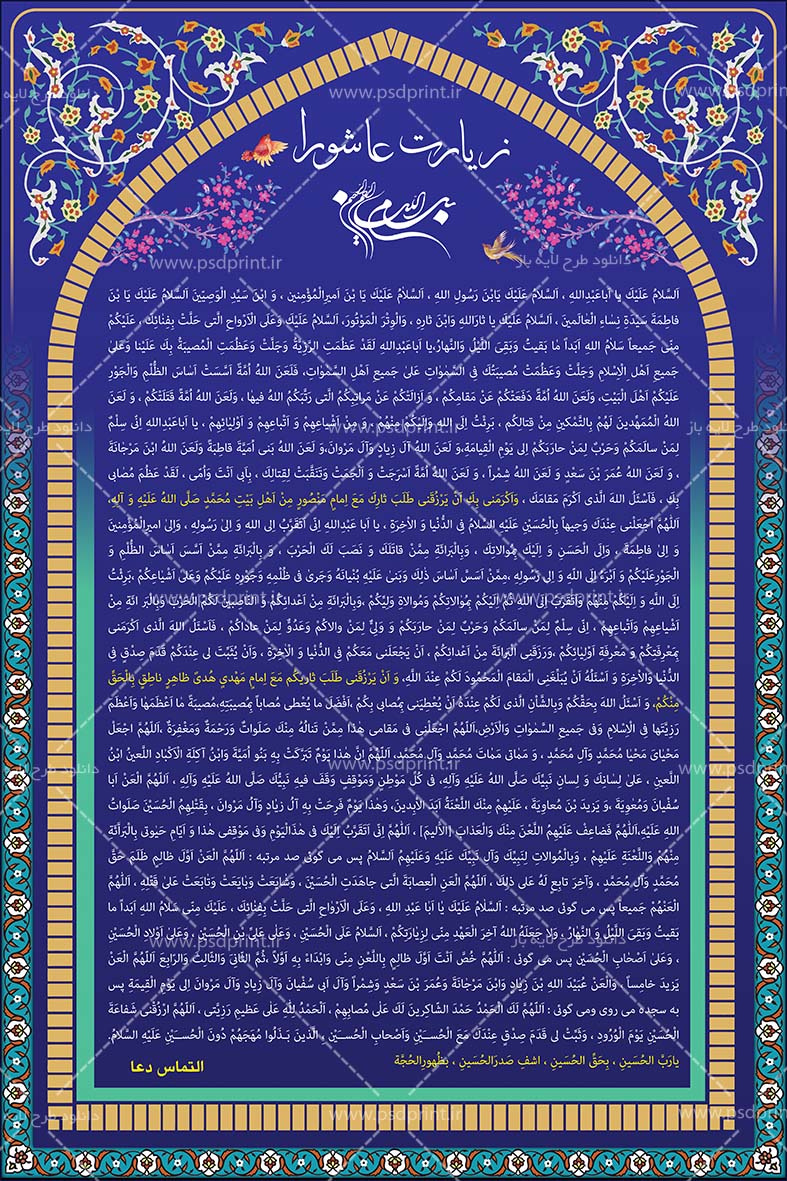 زیارت عاشورا
بسم الله الرحمن الرحیم
اَلسَّلامُ عَلَیْكَ یا اَباعَبْدِاللهِ ، اَلسَّلامُ عَلَیْكَ یَابْنَ رَسُولِ اللهِ ، اَلسَّلامُ عَلَیْكَ یَا بْنَ اَمیرِالْمُؤْمِنینَ ، وَ ابْنَ سَیِّدِ الْوَصِیّینَ اَلسَّلامُ عَلَیْكَ یَا بْنَ
فاطِمَةَ سَیِّدَةِ نِساءِ الْعالَمینَ ، اَلسَّلامُ عَلَیْكَ یا ثارَاللهِ وَابْنَ ثارِهِ ، وَالْوِتْرَ الْمَوْتُورَ، اَلسَّلامُ عَلَیْكَ وَعَلَى الْاَرْواحِ الَّتی حَلَّتْ بِفِنائِكَ ، عَلَیْكُمْ
مِنّی جَمیعاً سَلامُ اللهِ اَبَداً ما بَقیتُ وَبَقِیَ اللَّیْلُ وَالنَّهارُ،یا اَباعَبْدِاللهِ لَقَدْ عَظُمَتِ الرَّزِیَّةُ وَجَلَّتْ وَعَظُمَتِ الْمُصیبَةُ بِكَ عَلَیْنا وَعَلى
جَمیعِ اَهْلِ الْاِسْلامِ وَجَلَّتْ وَعَظُمَتْ مُصیبَتُكَ فِی السَّمٰواتِ عَلىٰ جَمیعِ اَهْلِ السَّمٰواتِ، فَلَعَنَ اللهُ اُمَّةً اَسَّسَتْ اَساسَ الظُّلْمِ وَالْجَوْرِ
عَلَیْكُمْ اَهْلَ الْبَیْتِ، وَلَعَنَ اللهُ اُمَّةً دَفَعَتْكُمْ عَنْ مَقامِكُمْ ، وَ اَزالَتْكُمْ عَنْ مَراتِبِكُمُ الَّتی رَتَّبَكُمُ اللهُ فیها، وَلَعَنَ اللهُ اُمَّةً قَتَلَتْكُمْ ، وَ لَعَنَ
اللهُ الْمُمَهِّدینَ لَهُمْ بِالتَّمْكینِ مِنْ قِتالِكُمْ ، بَرِئْتُ اِلَى اللهِ وَاِلَیْكُمْ مِنْهُمْ ، وَ مِنْ اَشْیاعِهِمْ وَ اَتْباعِهِمْ وَ اَوْلِیائِهِمْ ، یا اَباعَبْدِاللهِ اِنّی سِلْمٌ
لِمَنْ سالَمَكُمْ وَحَرْبٌ لِمَنْ حارَبَكُمْ اِلى یَوْمِ الْقِیامَةِ،وَ لَعَنَ اللهُ آلَ زِیادٍ وَآلَ مَرْوانَ،وَ لَعَنَ اللهُ بَنی اُمَیَّةَ قاطِبَةً وَلَعَنَ اللهُ ابْنَ مَرْجانَةَ
، وَ لَعَنَ اللهُ عُمَرَ بْنَ سَعْدٍ وَ لَعَنَ اللهُ شِمْراً ، وَ لَعَنَ اللهُ اُمَّةً اَسْرَجَتْ وَ اَلْجَمَتْ وَتَنَقَّبَتْ لِقِتالِكَ ، بِاَبی اَنْتَ وَاُمّی ، لَقَدْ عَظُمَ مُصابی
بِكَ ، فَاَسْئَلُ اللهَ الَّذی اَكْرَمَ مَقامَكَ ، وَاَكْرَمَنی بِكَ اَنْ یَرْزُقَنی طَلَبَ ثارِكَ مَعَ اِمامٍ مَنْصُورٍ مِنْ اَهْلِ بَیْتِ مُحَمَّدٍ صَلَّى اللهُ عَلَیْهِ وَ آلِهِ،
اَللّهُمَّ اجْعَلْنی عِنْدَكَ وَجیهاً بِالْحُسَیْنِ عَلَیْهِ السَّلامُ فِی الدُّنْیا وَ الْاخِرَةِ ، یا اَبا عَبْدِاللهِ اِنّی اَتَقَرَّبُ اِلى اللهِ وَ اِلى رَسُولِهِ ، وَاِلى امیرِالْمُؤْمِنینَ
وَ اِلىٰ فاطِمَةَ ، وَاِلَى الْحَسَنِ وَ اِلَیْكَ بِمُوالاتِكَ ، وَبِالْبَرائَةِ مِمَّنْ قاتَلَكَ وَ نَصَبَ لَكَ الْحَرْبَ ، وَ بِالْبَرائَةِ مِمَّنْ اَسَّسَ اَساسَ الظُّلْمِ وَ
الْجَوْرِعَلَیْكُمْ وَ اَبْرَءُ اِلَى اللّهِ وَ اِلى رَسُولِهِ،مِمَّنْ اَسَسَّ اَساسَ ذٰلِكَ وَبَنى عَلَیْهِ بُنْیانَهُ وَجَرىٰ فی ظُلْمِهِ وَجَوْرِهِ عَلَیْكُمْ وَعَلىٰ اَشْیاعِكُمْ ،بَرِئْتُ
اِلَى اللّهِ وَ اِلَیْكُمْ مِنْهُمْ وَاَتَقَرَّبُ اِلَى اللهِ ثُمَّ اِلَیْكُمْ بِمُوٰلاتِكُمْ وَمُوالاةِ وَلِیِّكُمْ ،وَبِالْبَرائَةِ مِنْ اَعْدائِكُمْ وَ النّاصِبینَ لَكُمُ الْحَرْبَ وَبِالْبَر ائَةِ مِنْ
اَشْیاعِهِمْ وَاَتْباعِهِمْ ، اِنّی سِلْمٌ لِمَنْ سالَمَكُمْ وَحَرْبٌ لِمَنْ حارَبَكُمْ وَ وَلِیٌّ لِمَنْ والاكُمْ وَعَدُوٌّ لِمَنْ عاداكُمْ ، فَاَسْئَلُ اللهَ الَّذی اَكْرَمَنی
بِمَعْرِفَتِكُمْ وَ مَعْرِفَةِ اَوْلِیائِكُمْ ،وَرَزَقَنِی الْبَرائَةَ مِنْ اَعْدائِكُمْ ، اَنْ یَجْعَلَنی مَعَكُمْ فِی الدُّنْیا وَ الْاخِرَةِ ، وَاَنْ یُثَبِّتَ لی عِنْدَكُمْ قَدَمَ صِدْقٍ فِی
الدُّنْیا وَالْاخِرَةِ وَ اَسْئَلُهُ اَنْ یُبَلِّغَنِی الْمَقامَ الْمَحْمُودَ لَكُمْ عِنْدَ اللّهِ، وَ اَنْ یَرْزُقَنی طَلَبَ ثاریكُمْ مَعَ اِمامٍ مَهْدِیٍ هُدىً ظاهِرٍ ناطِقٍ بِالْحَقِّ
مِنْكُمْ، وَ اَسْئَلُ اللهَ بِحَقِّكُمْ وَبِالشَّأنِ الَّذی لَكُمْ عِنْدَهُ اَنْ یُعْطِیَنی بِمُصابی بِكُمْ ،اَفْضَلَ ما یُعْطی مُصاباً بِمُصیبَتِهِ،مُصیبَةً ما اَعْظَمَها وَاَعْظَمَ
رَزِیَّتَها فِی الْاِسْلامِ وَفی جَمیعِ السَّمٰواتِ وَالْاَرْضِ،اَللّهُمَّ اجْعَلْنی فی مَقامی هٰذا مِمَّنْ تَنالُهُ مِنْكَ صَلَواتٌ وَرَحْمَةٌ وَمَغْفِرَةٌ ،اَللّهُمَّ اجْعَلْ
مَحْیایَ مَحْیا مُحَمَّدٍ وَآلِ مُحَمَّدٍ ، وَ مَماتی مَماتَ مُحَمَّدٍ وَآلِ مُحَمَّدٍ، اَللّهُمَّ اِنَّ هٰذا یَوْمٌ تَبَرَّكَتْ بِهِ بَنُو اُمَیَّةَ وَابْنُ آكِلَةِ الْاَكْبادِ اللَّعینُ ابْنُ
اللَّعینِ ، عَلىٰ لِسانِكَ وَ لِسانِ نَبِیِّكَ صَلَّى اللهُ عَلَیْهِ وَآلِهِ، فی كُلِّ مَوْطِنٍ وَمَوْقِفٍ وَقَفَ فیهِ نَبِیُّكَ صَلَّى اللهُ عَلَیْهِ وَآلِهِ ، اَللّهُمَّ الْعَنْ اَبا
سُفْیانَ وَمُعٰوِیَةَ ،وَ یَزیدَ بْنَ مُعاوِیَةَ ، عَلَیْهِمْ مِنْكَ اللَّعْنَةُ اَبَدَ الْابِدینَ، وَهٰذا یَوْمٌ فَرِحَتْ بِهِ آلُ زِیادٍ وَآلُ مَرْوانَ ، بِقَتْلِهِمُ الْحُسَیْنَ صَلَواتُ
اللهِ عَلَیْهِ،اَللّهُمَّ فَضاعِفْ عَلَیْهِمُ اللَّعْنَ مِنْكَ وَالْعَذابَ [الْاَلیمَ] ، اَللّهُمَّ اِنّی اَتَقَرَّبُ اِلَیْكَ فی هٰذَاالْیَوْمِ وَفی مَوْقِفی هٰذا وَ اَیّامِ حَیٰوتی بِالْبَرائَةِ
مِنْهُمْ وَاللَّعْنَةِ عَلَیْهِمْ ، وَبِالْمُوالاتِ لِنَبِیِّكَ وَآلِ نَبِیِّكَ عَلَیْهِ وَعَلَیْهِمُ اَلسَّلامُ پس می گوئی صد مرتبه : اَللّهُمَّ الْعَنْ اَوَّلَ ظالِمٍ ظَلَمَ حَقَّ
مُحَمَّدٍ وَآلِ مُحَمَّدٍ ، وَآخِرَ تابِعٍ لَهُ عَلىٰ ذٰلِكَ ، اَللّهُمَّ الْعَنِ الْعِصابَةَ الَّتی جاهَدَتِ الْحُسَیْنَ ، وَشایَعَتْ وَبایَعَتْ وَتابَعَتْ عَلىٰ قَتْلِهِ ، اَللّهُمَّ
الْعَنْهُمْ جَمیعاً پس می گوئی صد مرتبه : اَلسَّلامُ عَلَیْكَ یا اَبا عَبْدِ اللهِ ، وَعَلَى الْاَرْواحِ الَّتی حَلَّتْ بِفِنائِكَ ، عَلَیْكَ مِنّی سَلامُ اللهِ اَبَداً ما
بَقیتُ وَبَقِیَ اللَّیْلُ وَ النَّهارُ ، وَلا جَعَلَهُ اللهُ آخِرَ الْعَهْدِ مِنّی لِزِیارَتِكُمْ ، اَلسَّلامُ عَلَى الْحُسَیْنِ ، وَعَلىٰ عَلِیِّ بْنِ الْحُسَیْنِ ، وَعَلىٰ اَوْلادِ الْحُسَیْنِ
، وَعَلىٰ اَصْحابِ الْحُسَیْنِ پس می گوئی : اَللّهُمَّ خُصَّ اَنْتَ اَوَّلَ ظالِمٍ بِاللَّعْنِ مِنّی وَابْدَاءْ بِهِ اَوَّلاً ، ثُمَّ الثّانِیَ وَالثّالِثَ وَالرّابِعَ اَللّهُمَّ الْعَنْ
یَزیدَ خامِساً ، وَالْعَنْ عُبَیْدَ اللهِ بْنَ زِیادٍ وَابْنَ مَرْجانَةَ وَعُمَرَ بْنَ سَعْدٍ وَشِمْراً وَآلَ اَبی سُفْیانَ وَآلَ زِیادٍ وَآلَ مَرْوانَ اِلىٰ یَوْمِ الْقِیمَةِ پس
به سجده می روی ومی گوئی : اَللّهُمَّ لَكَ الْحَمْدُ حَمْدَ الشّاكِرینَ لَكَ عَلىٰ مُصابِهِمْ ، اَلْحَمْدُ لِلّهِ عَلىٰ عَظیمِ رَزِیَّتی ، اَللّهُمَّ ارْزُقْنی شَفاعَةَ
الْحُسَیْنِ یَوْمَ الْوُرُودِ ، وَثَبِّتْ لی قَدَمَ صِدْقٍ عِنْدَكَ مَعَ الْحُسَیْنِ وَاَصْحابِ الْحُسَیْنِ ، الَّذینَ بَذَلُوا مُهَجَهُمْ دُونَ الْحُسَیْنِ عَلَیْهِ السَّلامُ.
یارَبَّ الحُسَینِ ، بِحَقِّ الحُسَینِ ، اشفِ صَدرَالحُسَینِ ، بِظُهورِالحُجَّة
التماس دعا
www.psdprint.ir
دانلود طرح لایه باز